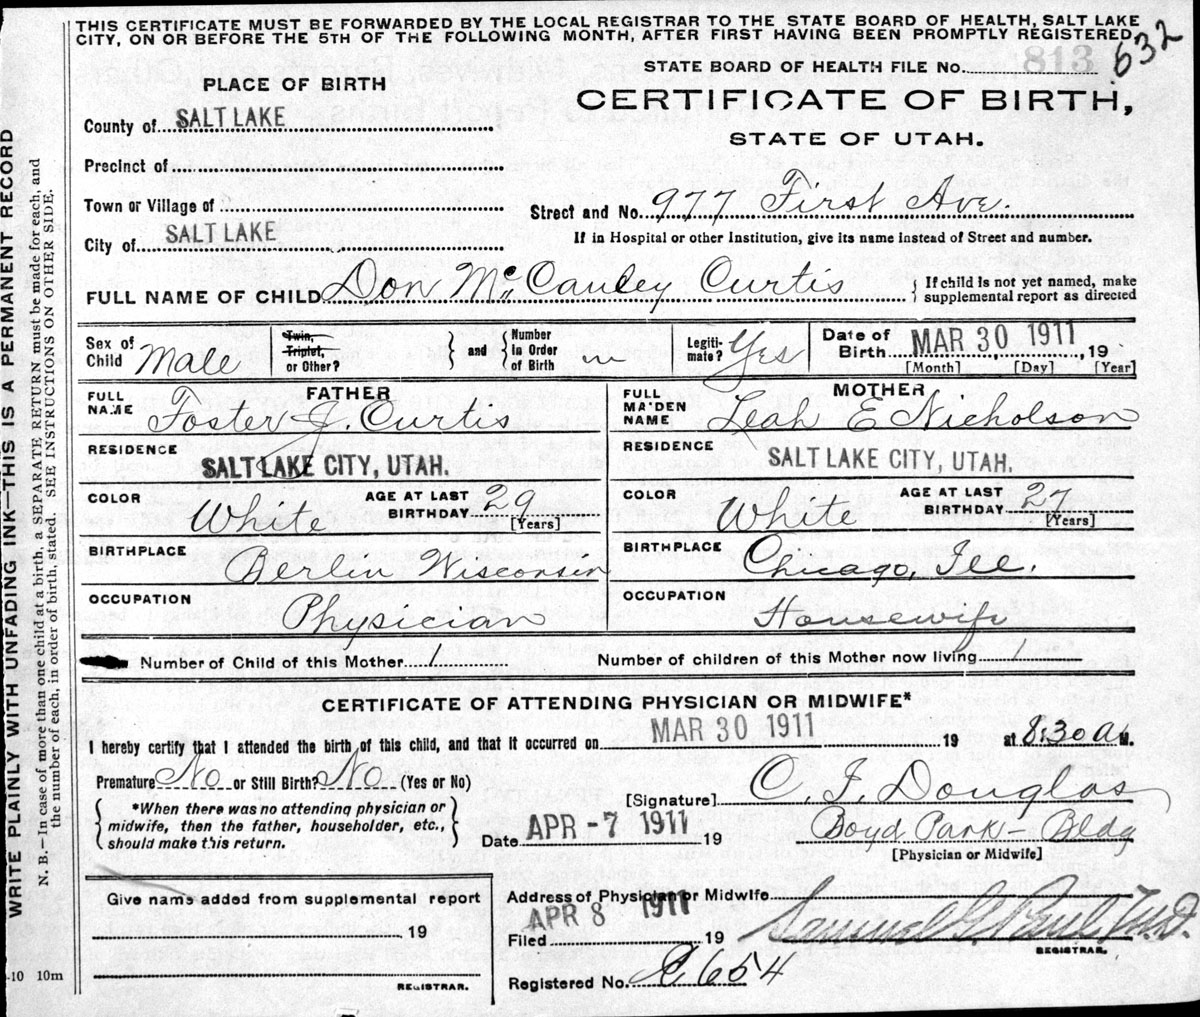 THIS CERTIFICATE MUST BE FORWARDED BY THE LOCAL REGISTRAR TO THE STATE BOARD OF HEALTH, SALT LAKE
CITY, ON OR BEFORE THE 5TH OF THE FOLLOWING MONTH, AFTER FIRST HAVING BEEN PROMPTLY REGISTERED.
WRITE PLAINLY WITH UNFADING INK—THIS IS A PERMANENT RECORD
N. B.—In case of more than one child at a birth, a SEPARATE RETURN must be made for each, and
the number of each, in order of birth, stated. SEE INSTRUCTIONS ON OTHER SIDE.
PLACE OF BIRTH
STATE BOARD OF HEALTH FILE No. 813 632
CERTIFICATE OF BIRTH,
STATE OF UTAH.
County of SALT LAKE
Precinct of
Town or Village of
Street and No. 977 First Ave.
City of SALT LAKE
If in Hospital or other Institution, give its name instead of Street and number.
FULL NAME OF CHILD Don McCauley Curtis
{ If child is not yet named, make
supplemental report as directed
Sex of Child Male
Twin, Triplet, or Other?
} and { Number in Order of Birth
Legiti-mate? Yes
Date of Birth MAR 30 1911, 19
[Month] [Day] [Year]
FATHER
FULL NAME Foster J. Curtis
RESIDENCE
SALT LAKE CITY, UTAH.
COLOR White
AGE AT LAST BIRTHDAY 29
[Years]
BIRTHPLACE
Berlin Wisconsin
OCCUPATION
Physician
MOTHER
FULL MAIDEN NAME Leah E Nicholson
RESIDENCE
SALT LAKE CITY, UTAH.
COLOR White
AGE AT LAST BIRTHDAY 27
[Years]
BIRTHPLACE
Chicago, Ill.
OCCUPATION
Housewife
Number of Child of this Mother 1
Number of children of this Mother now living 1
CERTIFICATE OF ATTENDING PHYSICIAN OR MIDWIFE*
I hereby certify that I attended the birth of this child, and that it occurred on MAR 30 1911 19 at 8:30 a M.
Premature No or Still Birth? No (Yes or No)
{ *When there was no attending physician or
midwife, then the father, householder, etc.,
should make this return. }
[Signature] C. F. Douglas
Date APR -7 1911 19
Boyd Park - Bldg
[Physician or Midwife]
Give name added from supplemental report
19
REGISTRAR.
Address of Physician or Midwife
Filed APR 8 1911 19
Samuel G. Paul, M.D.
REGISTRAR.
Registered No. 654
-10 10m